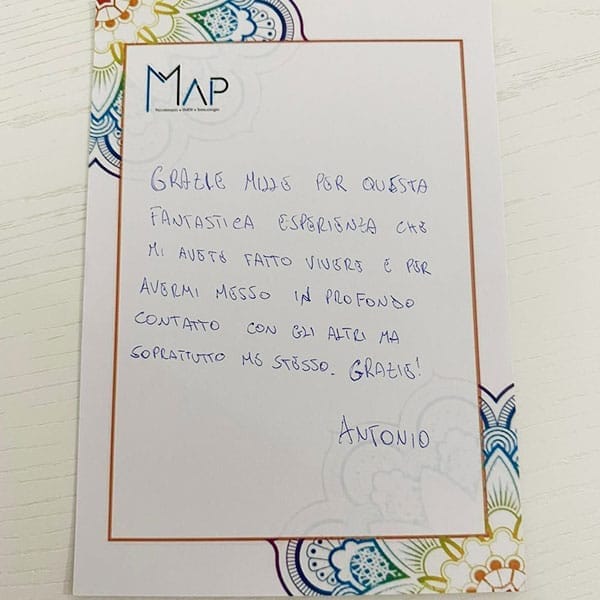 MAP
GRAZIE MILLE PER QUESTA
FANTASTICA ESPERIENZA CHE
MI AVETE FATTO VIVERE E PER
AVERMI MESSO IN PROFONDO
CONTATTO CON GLI ALTRI MA
SOPRATTUTTO ME STESSO. GRAZIE!
ANTONIO